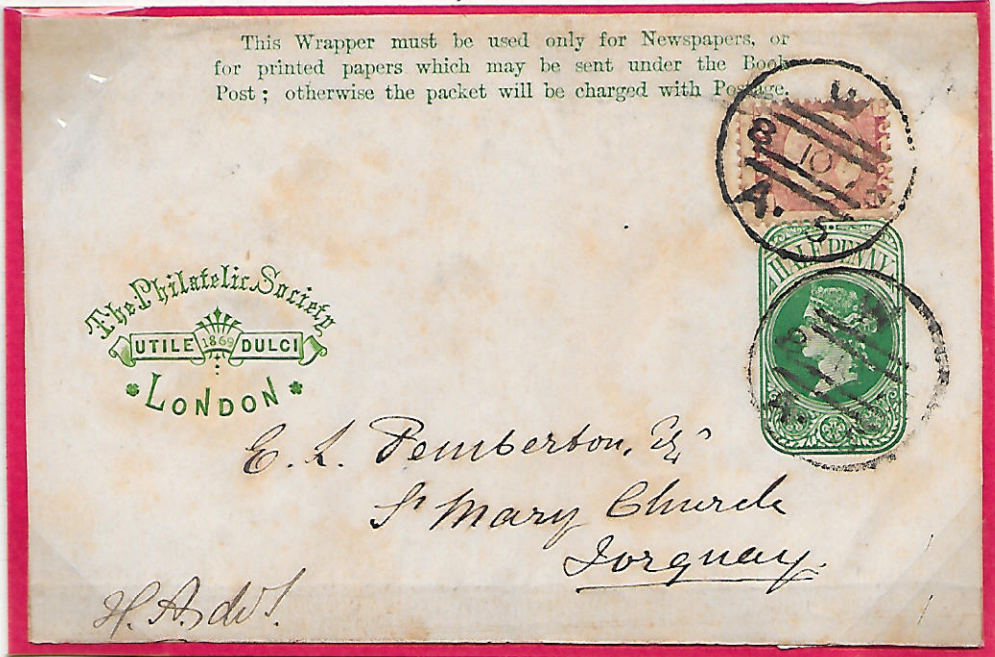 This Wrapper must be used only for Newspapers, or
for printed papers which may be sent under the Book
Post; otherwise the packet will be charged with Postage.
8 W
10
A. S
HALF PENNY
8 W
A.
The Philatelic Society
UTILE 1869 DULCI
LONDON
E. L. Pemberton, Esqr
St Mary Church
Torquay.
H. A. de J.